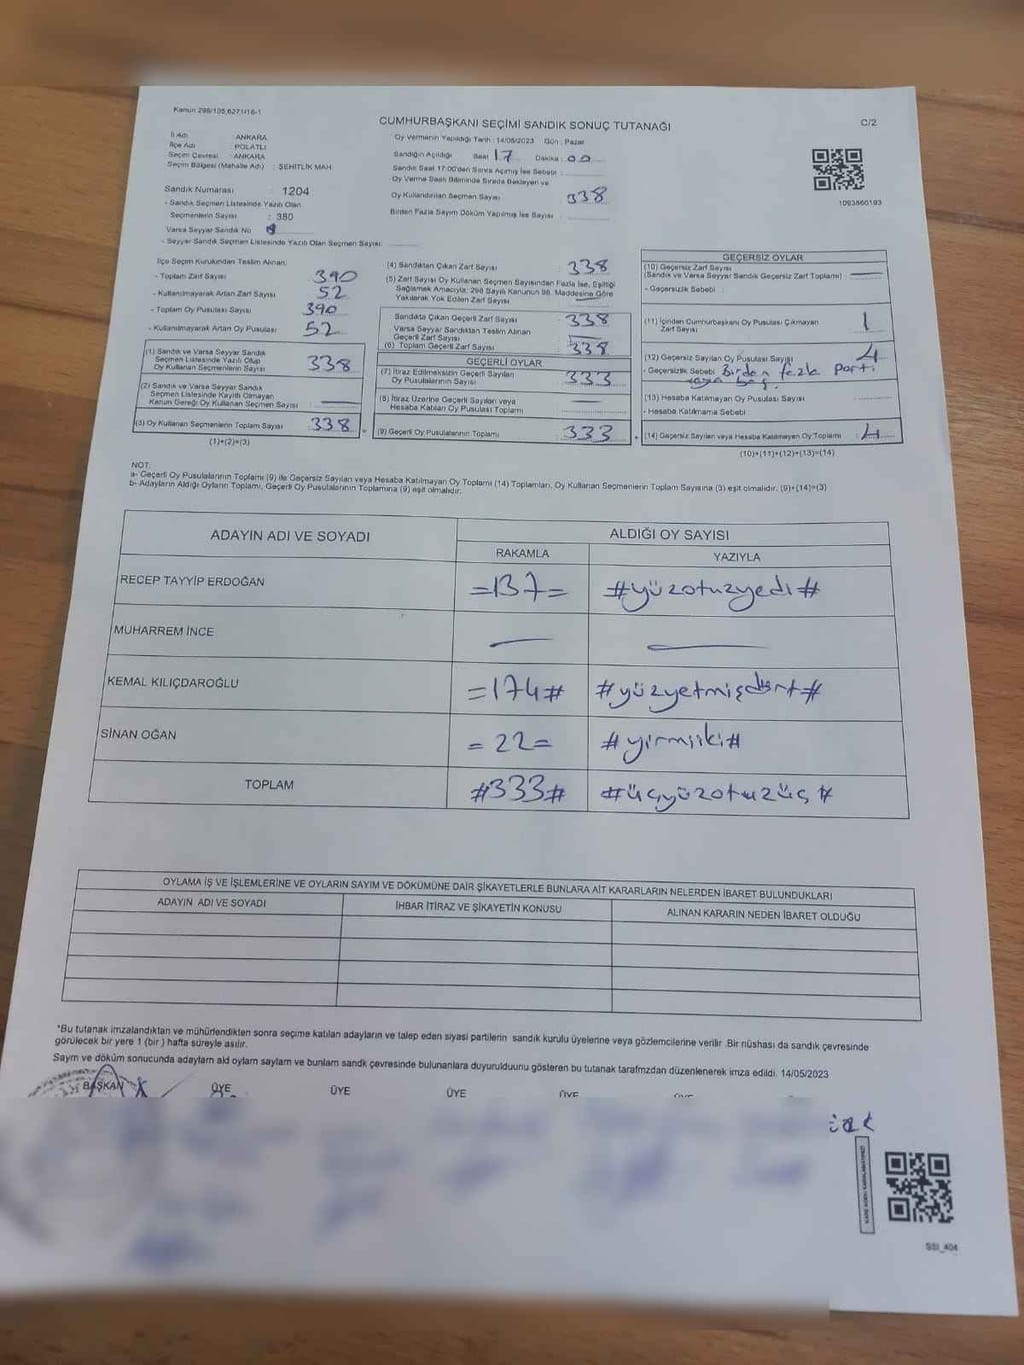 Kanun 298/105,6271/18-1
CUMHURBAŞKANI SEÇİMİ SANDIK SONUÇ TUTANAĞI
C/2
İl Adı : ANKARA
İlçe Adı : POLATLI
Seçim Çevresi : ANKARA
Seçim Bölgesi (Mahalle Adı) : ŞEHİTLİK MAH.
Sandık Numarası : 1204
- Sandık Seçmen Listesinde Yazılı Olan
Seçmenlerin Sayısı : 380
Varsa Seyyar Sandık No
- Seyyar Sandık Seçmen Listesinde Yazılı Olan Seçmen Sayısı:
Oy Vermenin Yapıldığı Tarih : 14/05/2023 Gün : Pazar
Sandığın Açıldığı Saat 17 Dakika : 00
Sandık Saat 17:00'den Sonra Açılmış İse Sebebi :
Oy Verme Saati Bitiminde Sırada Bekleyen ve
Oy Kullandırılan Seçmen Sayısı 338
Birden Fazla Sayım Döküm Yapılmış İse Sayısı
1093860193
İlçe Seçim Kurulundan Teslim Alınan;
- Toplam Zarf Sayısı 390
- Kullanılmayarak Artan Zarf Sayısı 52
- Toplam Oy Pusulası 390
- Kullanılmayarak Artan Oy Pusulası 52
(1) Sandık ve Varsa Seyyar Sandık
Seçmen Listesinde Yazılı Olup
Oy Kullanan Seçmenlerin Sayısı 338
(2) Sandık ve Varsa Seyyar Sandık
Seçmen Listesinde Kayıtlı Olmayan
Kanun Gereği Oy Kullanan Seçmen Sayısı
(3) Oy Kullanan Seçmenlerin Toplam Sayısı 338
(1)+(2)=(3)
(4) Sandıktan Çıkan Zarf Sayısı : 338
(5) Zarf Sayısı Oy Kullanan Seçmen Sayısından Fazla İse, Eşitliği
Sağlamak Amacıyla; 298 Sayılı Kanunun 98. Maddesine Göre
Yakılarak Yok Edilen Zarf Sayısı
Sandıkta Çıkan Geçerli Zarf Sayısı : 338
Varsa Seyyar Sandıktan Teslim Alınan
Geçerli Zarf Sayısı
(6) Toplam Geçerli Zarf Sayısı : 338
GEÇERLİ OYLAR
(7) İtiraz Edilmeksizin Geçerli Sayılan
Oy Pusulalarının Sayısı 333
(8) İtiraz Üzerine Geçerli Sayılan veya
Hesaba Katılan Oy Pusulası Toplamı
(9) Geçerli Oy Pusulalarının Toplamı 333
GEÇERSİZ OYLAR
(10) Geçersiz Zarf Sayısı
(Sandık ve Varsa Seyyar Sandık Geçersiz Zarf Toplamı)
- Geçersizlik Sebebi :
(11) İçinden Cumhurbaşkanı Oy Pusulası Çıkmayan
Zarf Sayısı 1
(12) Geçersiz Sayılan Oy Pusulası Sayısı 4
- Geçersizlik Sebebi Birden fazla parti
veya boş.
(13) Hesaba Katılmayan Oy Pusulası Sayısı
- Hesaba Katılmama Sebebi
(14) Geçersiz Sayılan veya Hesaba Katılmayan Oy Toplamı : 4
(10)+(11)+(12)+(13)=(14)
NOT:
a- Geçerli Oy Pusulalarının Toplamı (9) ile Geçersiz Sayılan veya Hesaba Katılmayan Oy Toplamı (14) Toplamları, Oy Kullanan Seçmenlerin Toplam Sayısına (3) eşit olmalıdır. (9)+(14)=(3)
b- Adayların Aldığı Oyların Toplamı, Geçerli Oy Pusulalarının Toplamına (9) eşit olmalıdır.
ADAYIN ADI VE SOYADI ALDIĞI OY SAYISI
RAKAMLA YAZIYLA
RECEP TAYYİP ERDOĞAN =137= #yüzotuzyedi#
MUHARREM İNCE
KEMAL KILIÇDAROĞLU =174# #yüzyetmişdört#
SİNAN OĞAN =22= #yirmiiki#
TOPLAM #333# #üçyüzotuzüç#
OYLAMA İŞ VE İŞLEMLERİNE VE OYLARIN SAYIM VE DÖKÜMÜNE DAİR ŞİKAYETLERLE BUNLARA AİT KARARLARIN NELERDEN İBARET BULUNDUKLARI
ADAYIN ADI VE SOYADI İHBAR İTİRAZ VE ŞİKAYETİN KONUSU ALINAN KARARIN NEDEN İBARET OLDUĞU
*Bu tutanak imzalandıktan ve mühürlendikten sonra seçime katılan adayların ve talep eden siyasi partilerin sandık kurulu üyelerine veya gözlemcilerine verilir .Bir nüshası da sandık çevresinde
görülecek bir yere 1 (bir ) hafta süreyle asılır.
Sayım ve döküm sonucunda adayların ald oyların sayların ve bunların sandk çevresinde bulunanlara duyurulduunu gösteren bu tutanak tarafmzdan düzenlenerek imza edildi. 14/05/2023
BAŞKAN ÜYE ÜYE ÜYE ÜYE
SSI_404